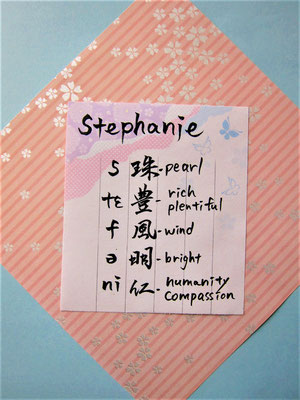 Stephanie
s 珠-pearl
tɛ 豊- rich
plentiful
f 風-wind
ə 明- bright
ni 仁- humanity
compassion